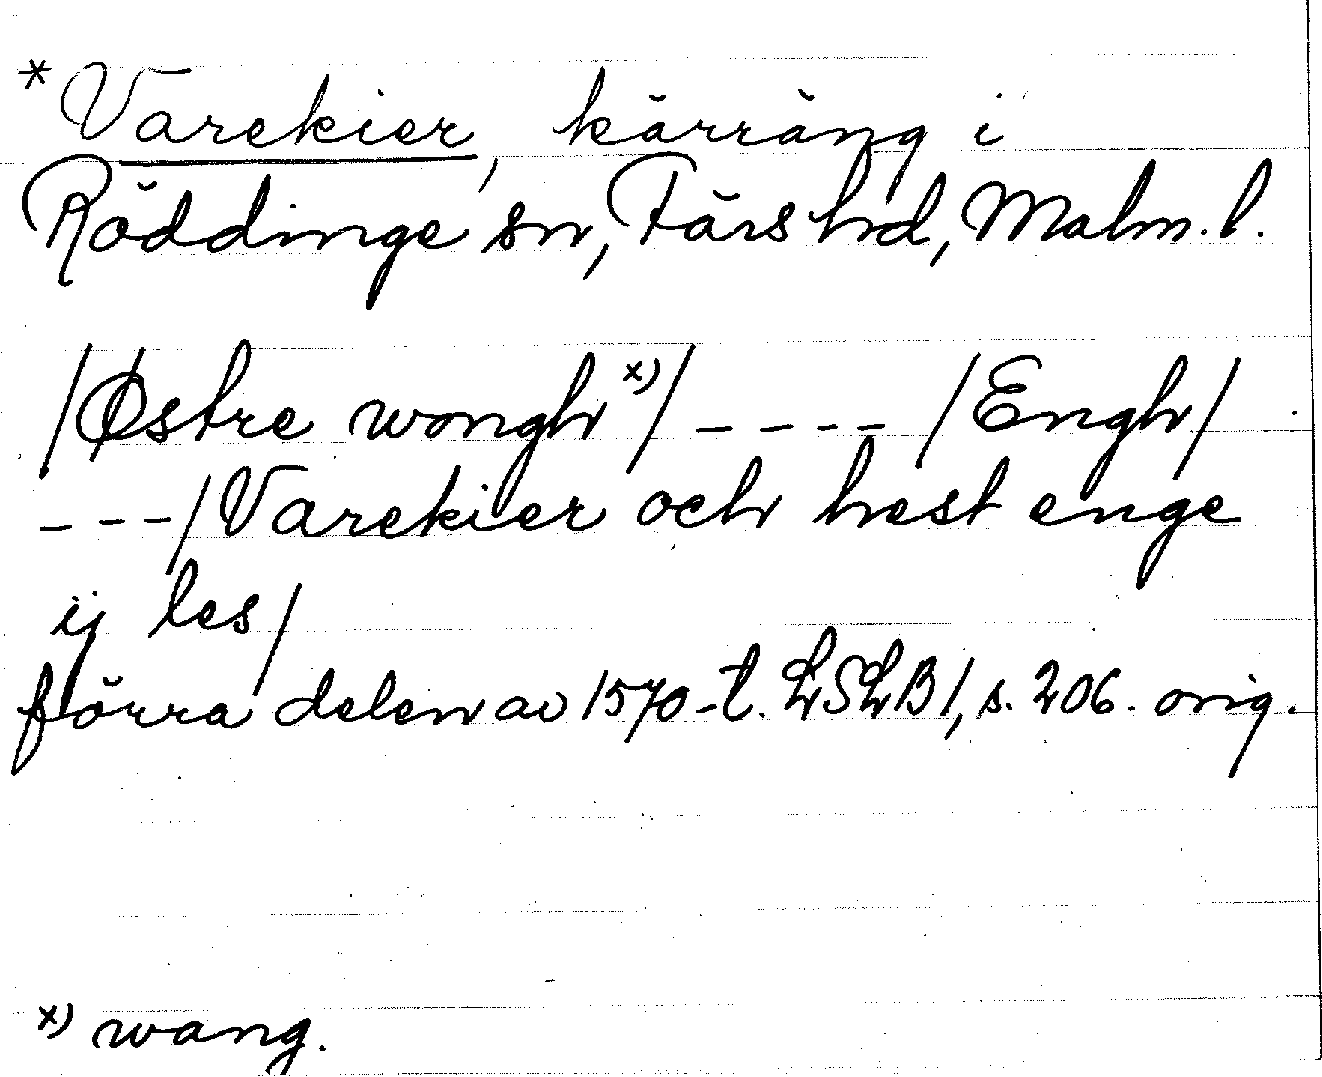 * Varekier, kärräng i
Röddinge sn, Färs hd, Malm. l.
/Østre wongh x)/ ---- /Engh/
---/Varekier och hest enge
ij les/
förra delen av 1570-t. LSLB 1, s. 206. orig.
x) wang.